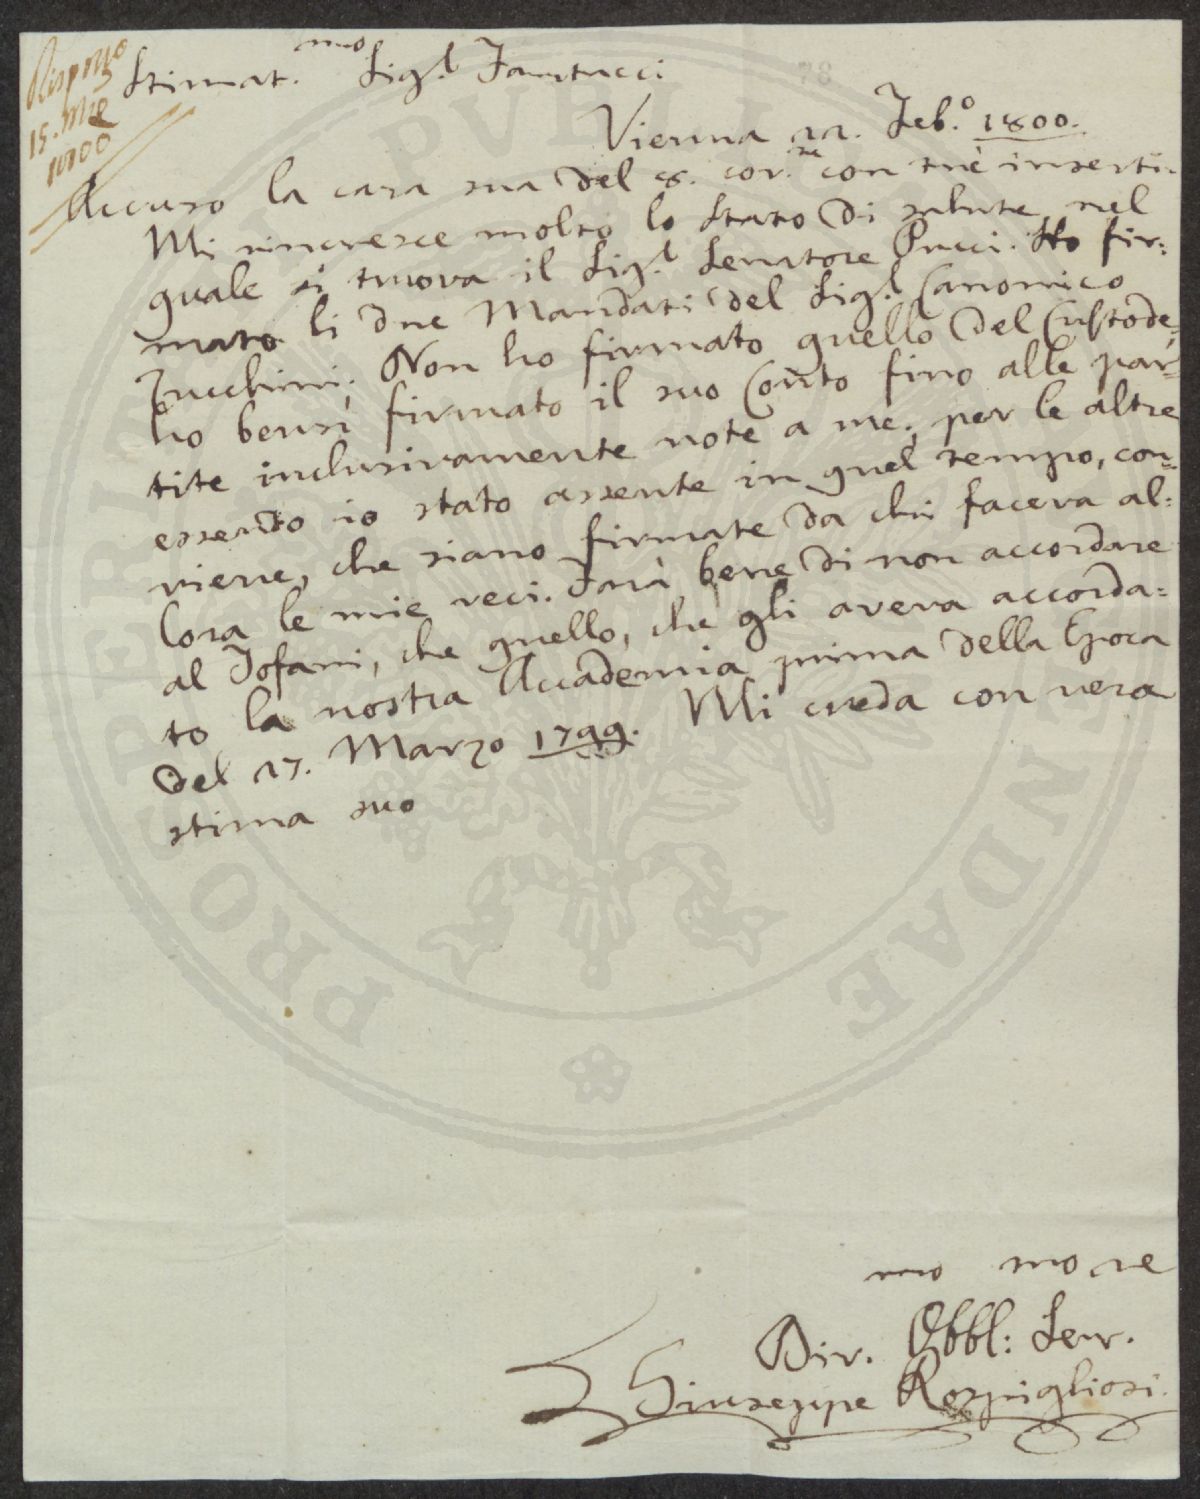 Risposto
15. Mzo
1800
78
Stimat.mo Sig.r Fantucci
Vienna 22. Feb.o 1800.
Accuso la cara sua del 8. cor.te con trè inserti.
Mi rincresce molto lo stato di salute, nel
quale si truova il Sig.r Senatore Pucci. Ho fir=
mato li due Mandati del Sig.r Canonico
Zucchini. Non ho firmato quello del Custode,
ho bensì firmato il suo Conto fino alle par=
tite inclusivamente note a me; per le altre
essendo io stato assente in quel tempo, con=
viene, che siano firmate da chi faceva al=
lora le mie veci. Farà bene di non accordare
al Tofani, che quello, che gli aveva accorda=
to la nostra Accademia prima della Epoca
del 27. Marzo 1799. Mi creda con vera
stima suo
Div.mo Obbl:mo Serv.re
Giuseppe Rospigliosi.
PROSPERITATI PVBLICAE AVGENDAE